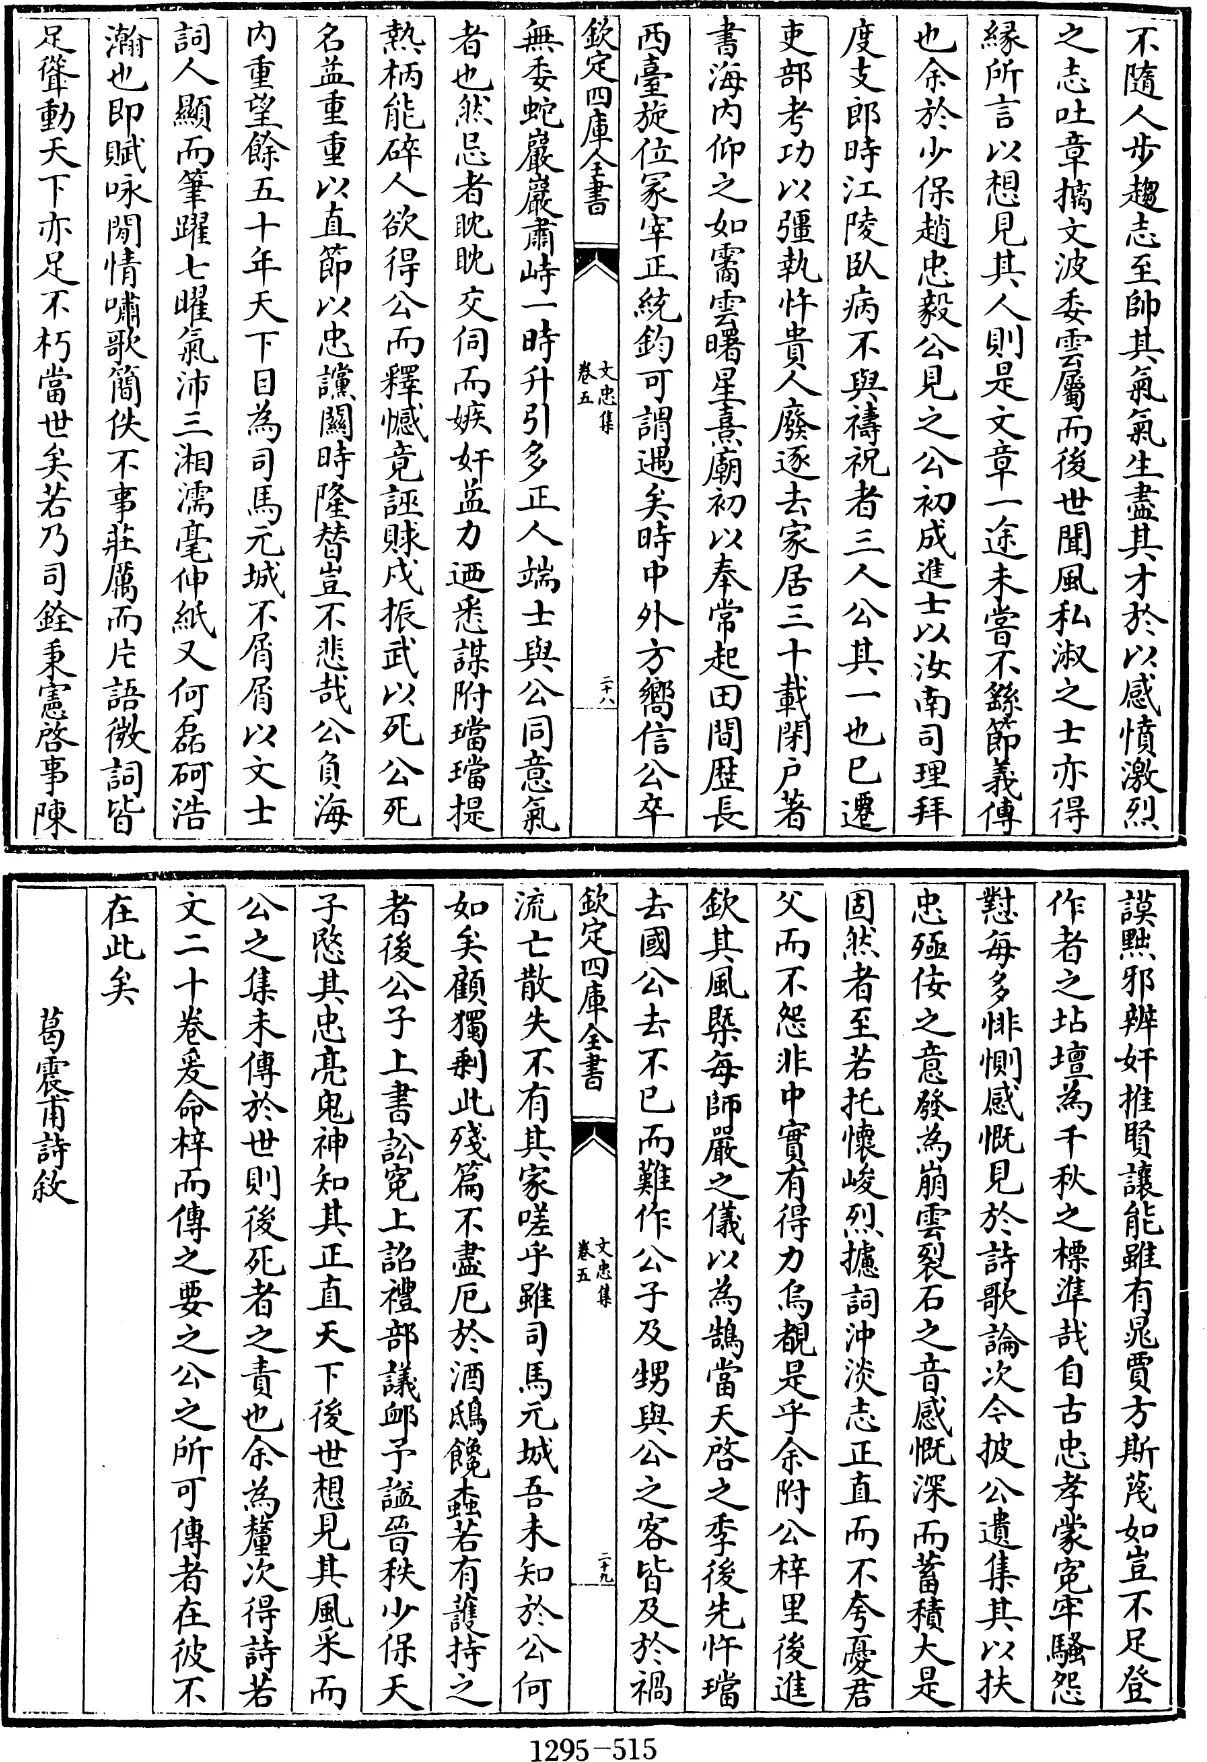 不隨人步趨志至帥其氣氣生盡其才於以感憤激烈
之志吐章摛文波委雲屬而後世聞風私淑之士亦得
緣所言以想見其人則是文章一途未嘗不繇節義傳
也余於少保趙忠毅公見之公初成進士以汝南司理拜
度支郎時江陵臥病不與禱祝者三人公其一也已遷
吏部考功以彊執忤貴人廢逐去家居三十載閉户著
書海内仰之如霱雲曙星熹廟初以奉常起田間歴長
西臺旋位冢宰正統鈞可謂遇矣時中外方嚮信公卒
欽定四庫全書
文忠集
卷五
二十八
無委蛇巖巖肅峙一時升引多正人端士與公同意氣
者也然忌者眈眈交伺而嫉奸益力迺悉謀附璫璫提
熱柄能碎人欲得公而釋憾竟誣賕戍振武以死公死
名益重重以直節以忠讜關時隆替豈不悲哉公負海
内重望餘五十年天下目為司馬元城不屑屑以文士
詞人顯而筆躍七曜氣沛三湘濡毫伸紙又何磊砢浩
瀚也即賦咏閒情嘯歌簡佚不事莊厲而片語微詞皆
足聳動天下亦足不朽當世矣若乃司銓秉憲啓事陳
謨黜邪辨奸推賢讓能雖有鼂賈方斯蔑如豈不足登
作者之坫壇為千秋之標準哉自古忠孝蒙寃牢騷怨
懟每多悱惻感慨見於詩歌論次今披公遺集其以扶
忠殛佞之意發為崩雲裂石之音感慨深而蓄積大是
固然者至若托懷峻烈攄詞沖淡志正直而不夸憂君
父而不怨非中實有得力烏覩是乎余附公梓里後進
欽其風槩每師嚴之儀以為鵠當天啓之季後先忤璫
去國公去不已而難作公子及甥與公之客皆及於禍
欽定四庫全書
文忠集
卷五
二十九
流亡散失不有其家嗟乎雖司馬元城吾未知於公何
如矣顧獨剩此殘篇不盡厄於酒鴟饞蠧若有護持之
者後公子上書訟寃上詔禮部議卹予諡晉秩少保天
子愍其忠亮鬼神知其正直天下後世想見其風采而
公之集未傳於世則後死者之責也余為釐次得詩若
文二十卷爰命梓而傳之要之公之所可傳者在彼不
在此矣
葛震甫詩敘
1295-515